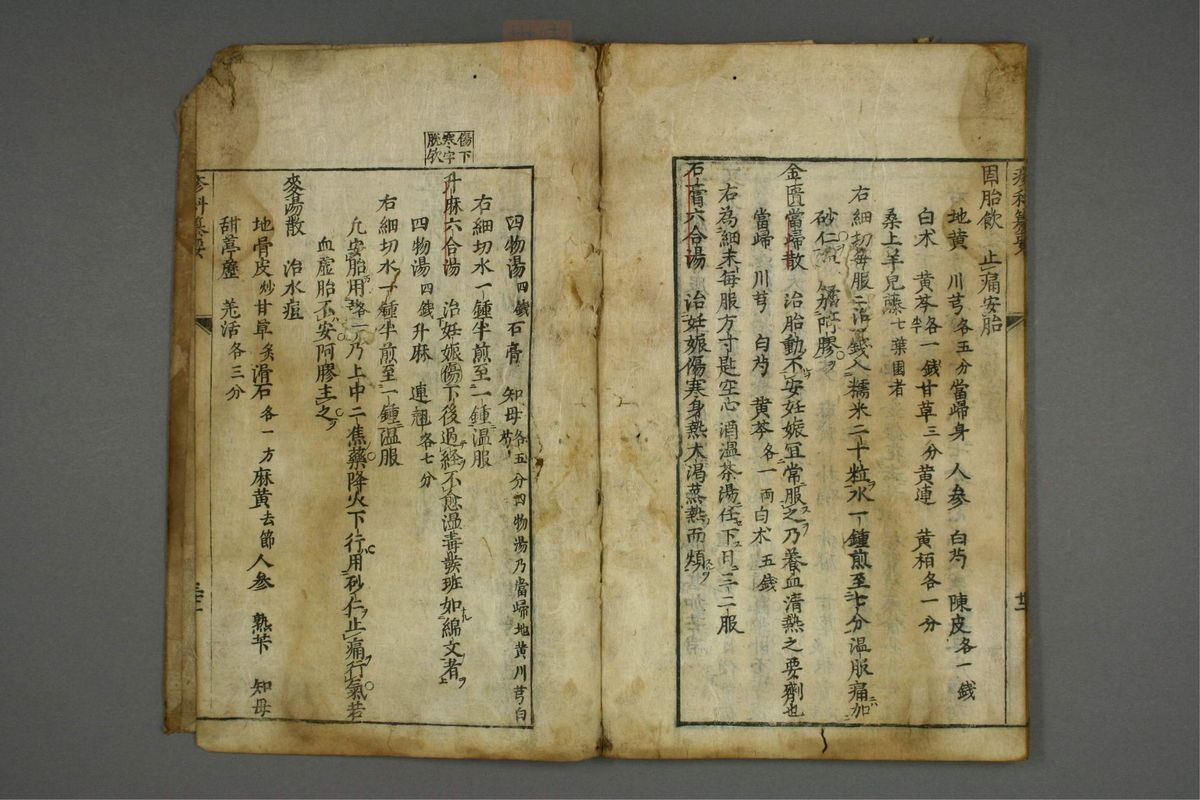 固胎飲　止痛安胎
地黄　川芎各五分當歸身　人參　白芍　陳皮各一錢
白术　黄芩各一錢甘草三分黄連　黄栢各一分
桑上羊兒藤七葉團者
右細切每服二錢入糯米二十粒水一鍾煎至七分温服痛加
砂仁　阿膠
金匱當歸散　治胎動不安妊娠宜常服之乃養血清熱之要劑也
當歸　川芎　白芍　黄芩各一両白术五錢
右為細末每服方寸匙空心酒温茶湯任下日三二服
石膏六合湯　治妊娠傷寒身熱大渴蒸熱而煩
四物湯四錢石膏　知母各五分四物湯乃當歸地黄川芎白
芍
右細切水一鍾半煎至一鍾温服
傷下
寒字
脱欤
升麻六合湯　治妊娠傷下後過経不愈温毒發班如綿文者
四物湯四錢升麻　連翹各七分
右細切水一鍾半煎至一鍾温服
凢安胎用　乃上中二焦藥降火下行用砂仁止痛行氣若
血虚胎不安阿膠主之
麥湯散　治水痘
地骨皮炒甘草炙滑石各一方麻黄去節人參　熟芐　知母
甜葶藶　羌活各三分